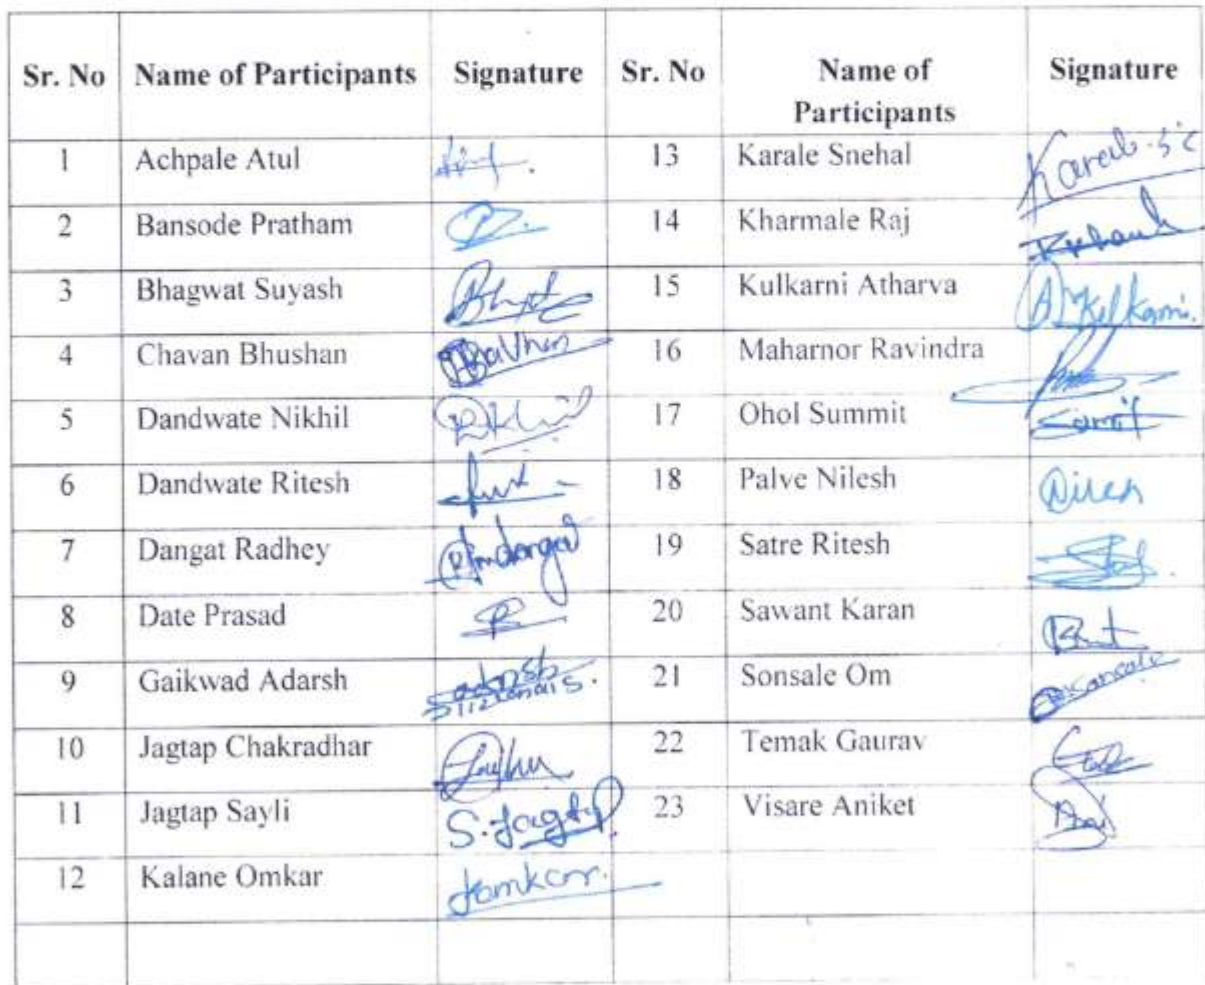 Sr. No Name of Participants Signature Sr. No Name of Signature
Participants
1 Achpale Atul 13 Karale Snehal
2 Bansode Pratham 14 Kharmale Raj
3 Bhagwat Suyash 15 Kulkarni Atharva
4 Chavan Bhushan 16 Maharnor Ravindra
5 Dandwate Nikhil 17 Ohol Summit
6 Dandwate Ritesh 18 Palve Nilesh
7 Dangat Radhey 19 Satre Ritesh
8 Date Prasad 20 Sawant Karan
9 Gaikwad Adarsh 21 Sonsale Om
10 Jagtap Chakradhar 22 Temak Gaurav
11 Jagtap Sayli S. Jagtap 23 Visare Aniket
12 Kalane Omkar